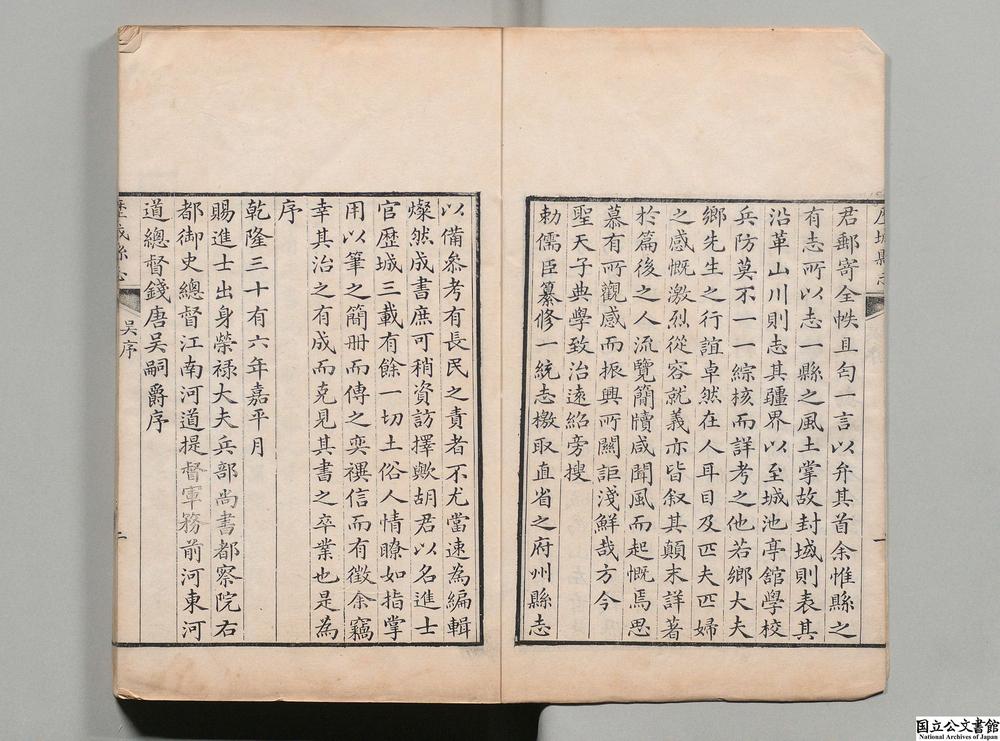 君郵寄全帙且匄一言以弁其首余惟縣之
有志所以志一縣之風土掌故封域則表其
沿革山川則志其疆界以至城池亭館學校
兵防莫不一一綜核而詳考之他若鄉大夫
鄉先生之行誼卓然在人耳目及匹夫匹婦
之感慨激烈從容就義亦皆叙其顛末詳著
於篇後之人流覽簡牘咸聞風而起慨焉思
慕有所觀感而振興所關詎淺鮮哉方今
聖天子典學致治遠紹旁搜
勅儒臣纂修一統志檄取直省之府州縣志
以備叅考有長民之責者不尤當速為編輯
燦然成書庶可稍資訪擇歟胡君以名進士
官歷城三載有餘一切土俗人情瞭如指掌
用以筆之簡册而傳之奕禩信而有徵余竊
幸其治之有成而克見其書之卒業也是為
序
乾隆三十有六年嘉平月
賜進士出身榮祿大夫兵部尚書都察院右
都御史總督江南河道提督軍務前河東河
道總督錢唐吳嗣爵序
歷城縣志
吳序
二
国立公文書館
National Archives of Japan